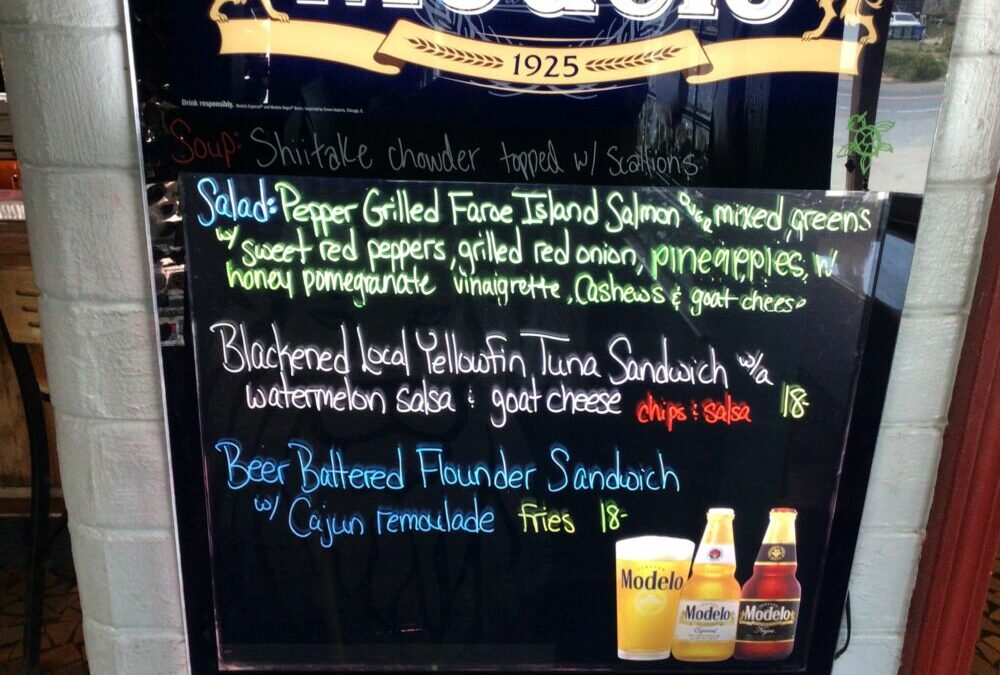 Modelo
1925
Drink responsibly.
Soup: Shiitake chowder topped w/ Scallions
Salad: Pepper Grilled Faroe Island Salmon over mixed greens
w/ sweet red peppers, grilled red onion, pineapples, w/
honey pomegranate vinaigrette, Cashews & goat cheese
Blackened Local Yellowfin Tuna Sandwich w/a
watermelon salsa & goat cheese chips & salsa 18-
Beer Battered Flounder Sandwich
w/ Cajun remoulade fries 18-
Modelo
Modelo
Especial
Modelo
Negra